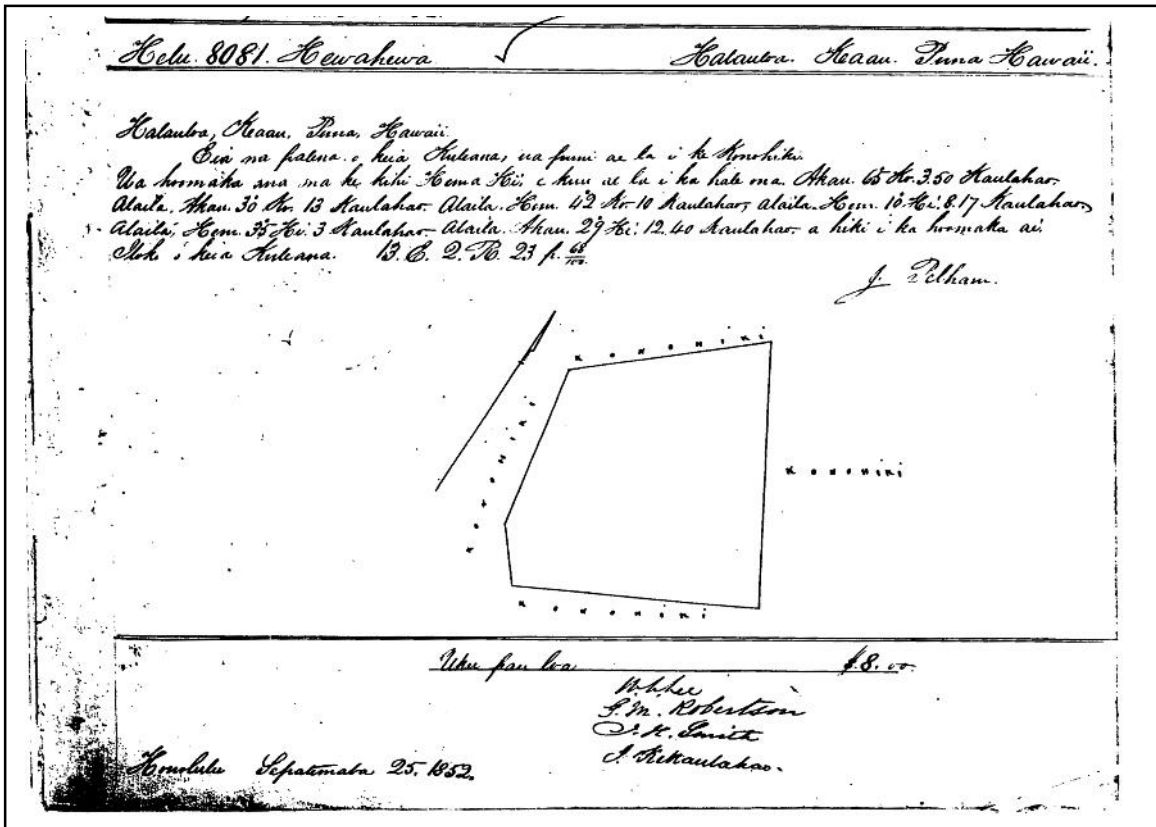 Helu. 8081. Hewahewa Halauloa. Keaau. Puna Hawaii.
Halauloa, Keaau, Puna, Hawaii.
Eia na palena o keia Kuleana, ua puni ae la i ke Konohiki.
Ua hoomaka ana ma ke kihi Hema Hi, e kuu ae la i ka hale ona. Akau. 65 Ko. 3.50 Kaulahao.
Alaila. Akau. 30 Ko. 13 Kaulahao. Alaila. Hem. 42 Ko. 10 Kaulahao, Alaila. Hem. 16 Hi. 8.17 Kaulahao,
Alaila, Hem. 35 Hi. 3 Kaulahao. Alaila. Akau. 29 Hi. 12.40 Kaulahao. a hiki i ka hoomaka ai.
Iloko o keia Kuleana. 13. E. 2. R. 23 p. 68/100
J. Pelham.
KONOHIKI
KONOHIKI
KONOHIKI
KONOHIKI
Uku pau loa $8.00
W. L. Lee
G. M. Robertson
J. H. Smith
J. Kekaulahao.
Honolulu Sepatemaba 25. 1852.